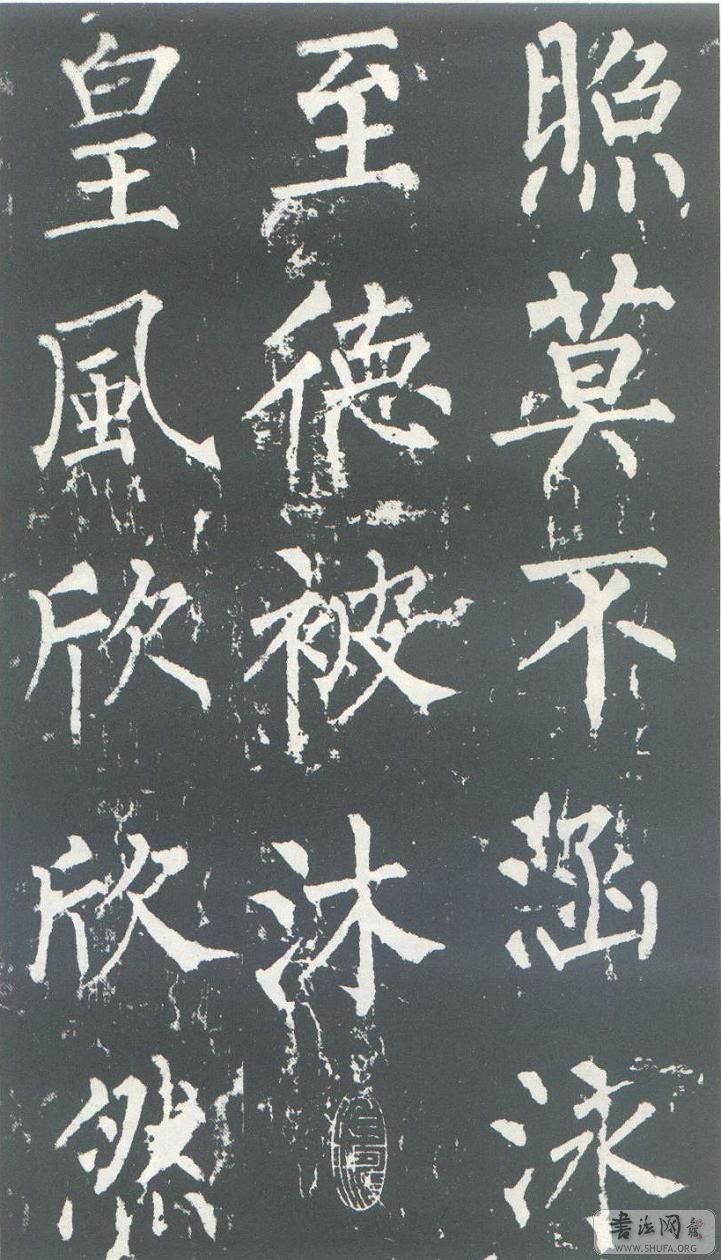 照莫不涵泳
至德被沐
皇風欣欣然
書法网
WWW.SHUFA.ORG